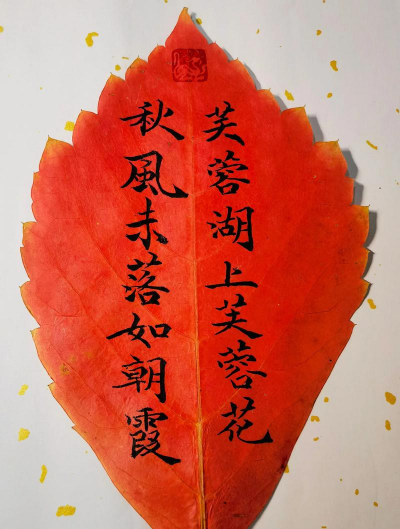 芙蓉湖上芙蓉花
秋風未落如朝霞